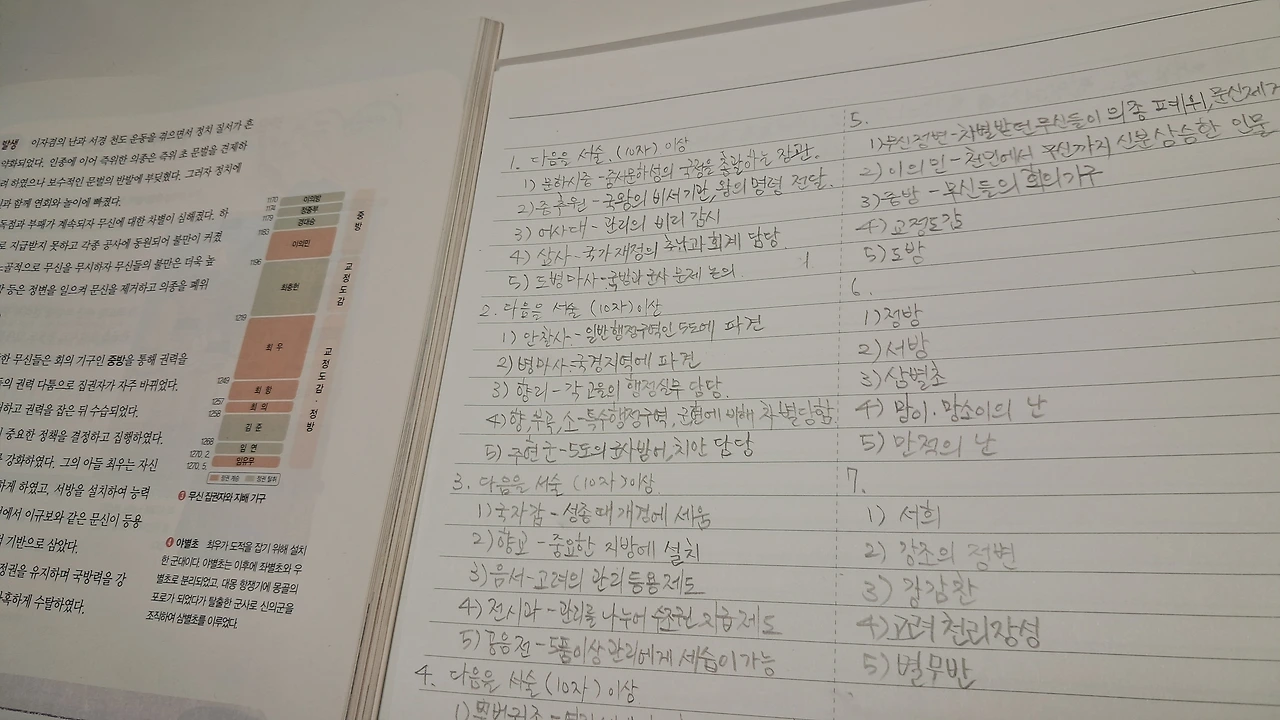 발생 이자겸의 난과 서경 천도 운동을 겪으면서 정치 질서가 흔
약화되었다. 인종에 이어 즉위한 의종은 즉위 초 문벌을 견제하
려 하였으나 보수적인 문벌의 반발에 부딪혔다. 그러자 정치에
과 함께 연회와 놀이에 빠졌다.
독점과 부패가 계속되자 무신에 대한 차별이 심해졌다. 하
로 지급받지 못하고 각종 공사에 동원되어 불만이 커졌
노골적으로 무신을 무시하자 무신들의 불만은 더욱 높
등은 정변을 일으켜 문신을 제거하고 의종을 폐위
한 무신들은 회의 기구인 중방을 통해 권력을
들의 권력 다툼으로 집권자가 자주 바뀌었다.
하고 권력을 잡은 뒤 수습되었다.
중요한 정책을 결정하고 집행하였다.
강화하였다. 그의 아들 최우는 자신
하게 하였고, 서방을 설치하여 능력
에서 이규보와 같은 문신이 등용
기반으로 삼았다.
정권을 유지하며 국방력을 강
혹하게 수탈하였다.
1170 이의방
1174 정중부
1179 경대승
1183 이의민
1196 최충헌
1219 최 우
1249 최 항
1257 최 의
1258 김 준
1268 임 연
1270. 2. 임유무
1270. 5.
중방
교정도감
교정도감·정방
정권 계승 정권 탈취
3 무신 집권자와 지배 기구
4 야별초 최우가 도적을 잡기 위해 설치
한 군대이다. 야별초는 이후에 좌별초와 우
별초로 분리되었고, 대몽 항쟁기에 몽골의
포로가 되었다가 탈출한 군사로 신의군을
조직하여 삼별초를 이루었다.
1. 다음을 서술. (10자) 이상
1) 문하시중 - 중서문하성의 국정을 총괄하는 장관.
2) 중추원 - 국왕의 비서기관, 왕의 명령 전달.
3) 어사대 - 관리의 비리 감시
4) 삼사 - 국가 재정의 출납과 회계 담당.
5) 도병마사 - 국방과 군사 문제 논의.
2. 다음을 서술 (10자) 이상
1) 안찰사 - 일반행정구역인 5도에 파견
2) 병마사 - 국경지역에 파견
3) 향리 - 각 고을의 행정실무 담당.
4) 향, 부곡, 소 - 특수행정구역, 군현에 비해 차별당함.
5) 주현군 - 5도의 군사방어, 치안 담당
3. 다음을 서술 (10자) 이상.
1) 국자감 - 성종 때 개경에 세움
2) 향교 - 중요한 지방에 설치
3) 음서 - 고려의 관리 등용 제도
4) 전시과 - 관리를 나누어 수조권 지급 제도
5) 공음전 - 5품이상 관리에게 세습이 가능
4. 다음을 서술 (10자) 이상
5.
1) 무신정변 - 차별받던 무신들이 의종 폐위, 문신제거
2) 이의민 - 천인에서 무신까지 신분상승한 인물
3) 중방 - 무신들의 회의기구
4) 교정도감
5) 도방
6.
1) 정방
2) 서방
3) 삼별초
4) 망이·망소이의 난
5) 만적의 난
7.
1) 서희
2) 강조의 정변
3) 강감찬
4) 고려 천리장성
5) 별무반